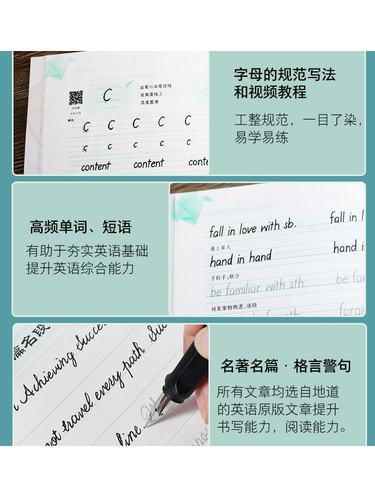 C
起笔与收笔两线
在角度线上
弧度圆滑
字母的规范写法
和视频教程
工整规范，一目了染，
易学易练
C C C C C
c c c c c
content content content
高频单词、短语
有助于夯实英语基础
提升英语综合能力
fall in love with sb. fall in l
爱上某人
hand in hand hand in
手拉手,联合
be familiar with sth be f
对某事物熟悉、通晓
篇名段
n Achieving succes
not travel every path
line
名著名篇·格言警句
所有文章均选自地道
的英语原版文章提升
书写能力，阅读能力。